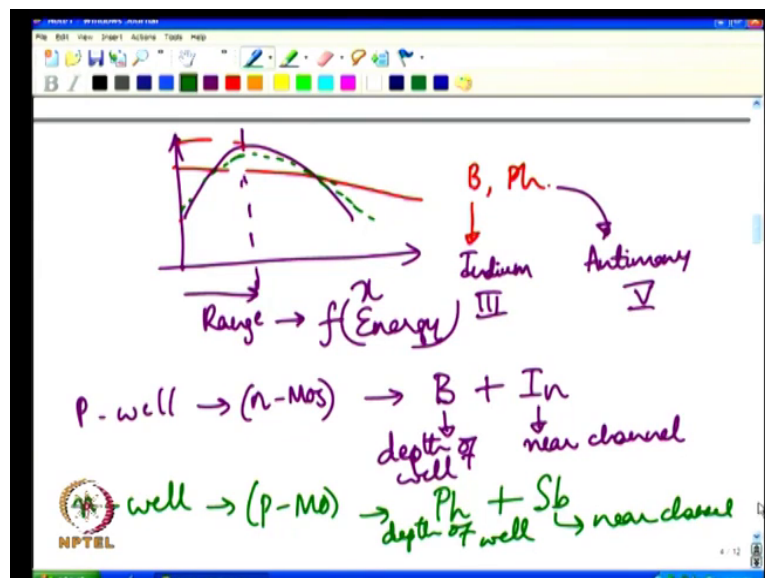 Note1 - Windows Journal
File Edit View Insert Actions Tools Help
B I
B, Ph.
Indium Antimony
III V
x
Range → f(Energy)
P-well → (n-Mos) → B + In
depth of well near channel
-well → (P-Mo) → Ph + Sb
depth of well → near channel
NPTEL
4 / 12